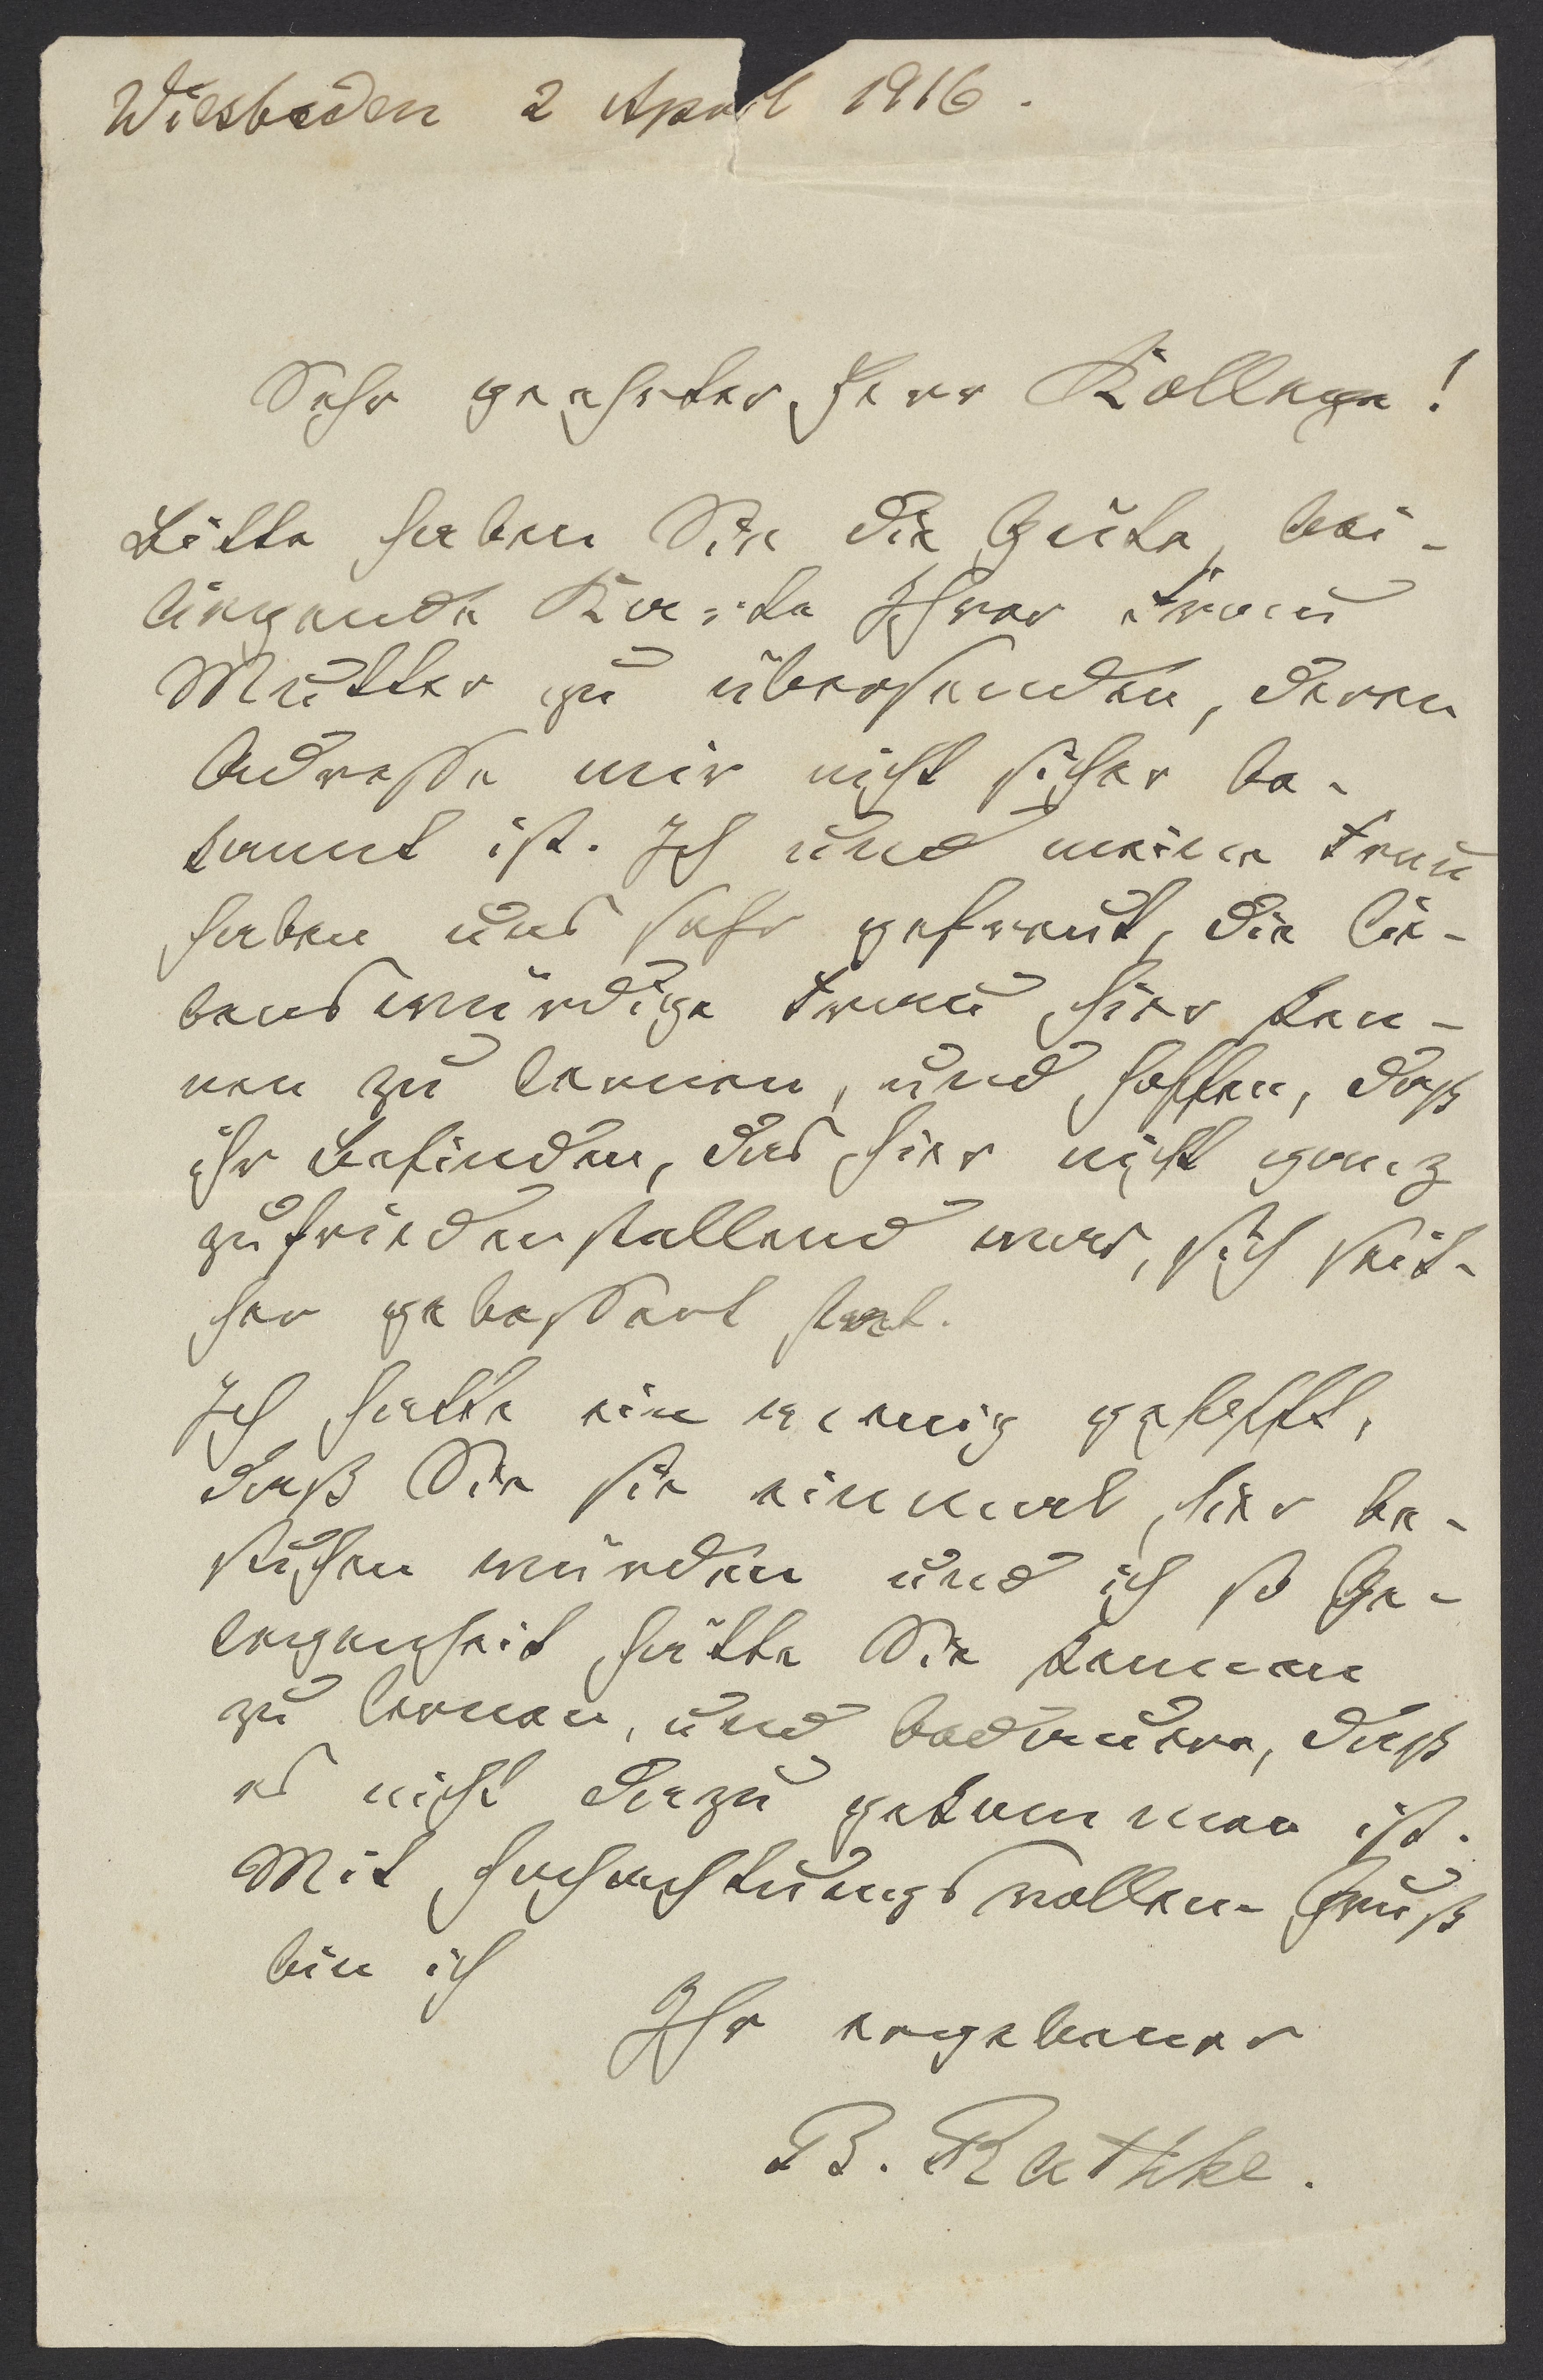 Wiesbaden 2 April 1916.
Sehr geehrter Herr Kollege!
Bitte haben Sie die Güte, bei-
liegende Karte Ihrer Frau
Mutter zu übersenden, deren
Adresse mir nicht sicher be-
kannt ist. Ich und meine Frau
haben uns sehr gefreut, die lie-
benswürdige Frau hier ken-
nen zu lernen, und hoffen, daß
ihr Befinden, das hier nicht ganz
zufriedenstellend war, sich seit-
her gebessert hat.
Ich hatte ein wenig gehofft,
daß Sie sie einmal hier be-
suchen würden und ich so Ge-
legenheit hätte Sie kennen
zu lernen, und bedauere, daß
es nicht dazu gekommen ist.
Mit hochachtungsvollem Gruß
bin ich
Ihr ergebener
B. Rathke.